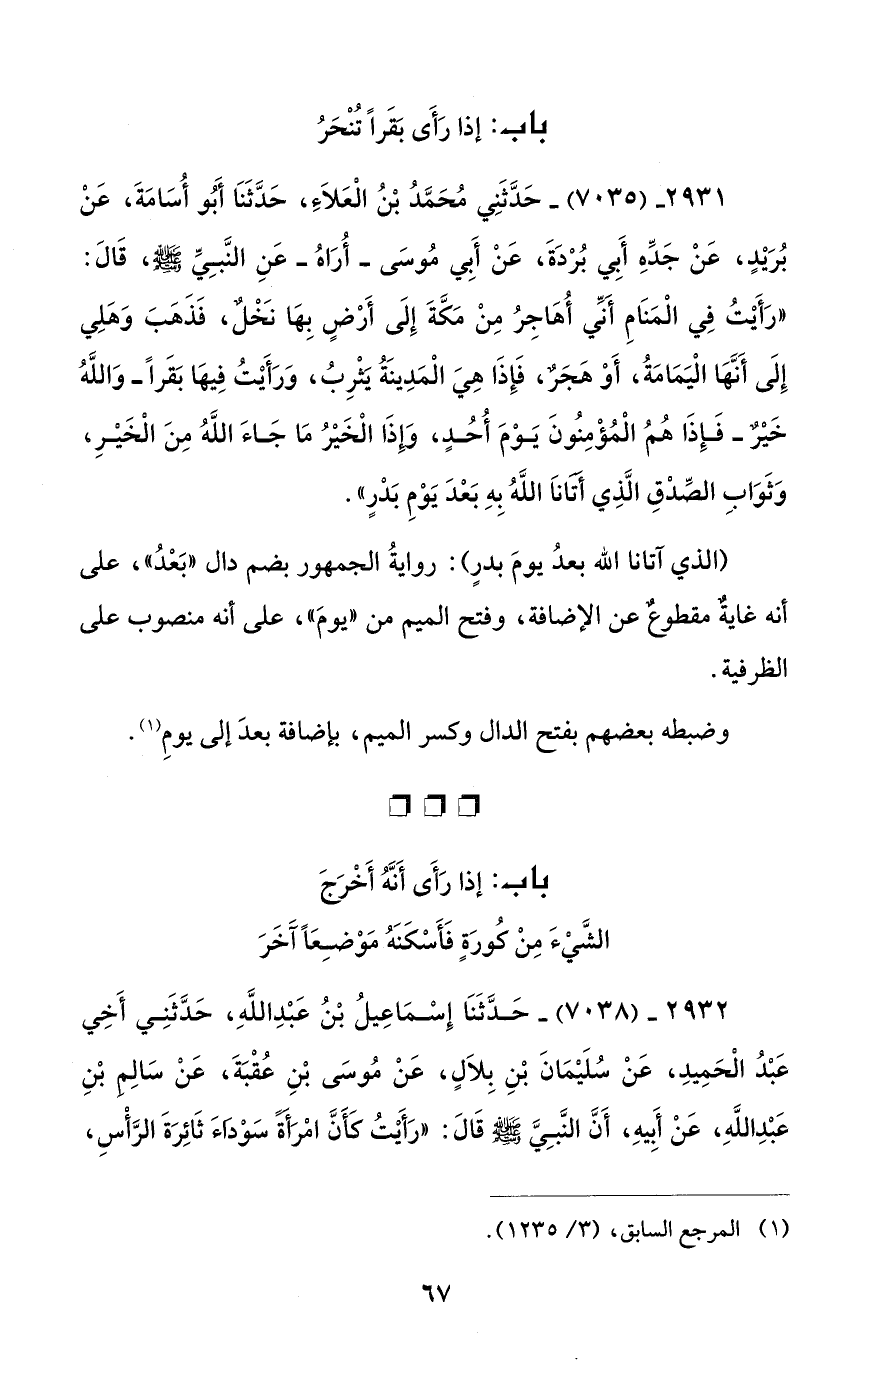 باب: إذا رَأَى بَقَراً تُنْحَرُ
٢٩٣١ـ (٧٠٣٥) ـ حَدَّثَنِي مُحَمَّدُ بْنُ الْعَلاَءِ، حَدَّثَنَا أَبُو أُسَامَةَ، عَنْ
بُرَيْدٍ، عَنْ جَدِّهِ أَبِي بُرْدَةَ، عَنْ أَبِي مُوسَى ـ أُرَاهُ ـ عَنِ النَّبِيِّ ﷺ، قَالَ:
«رَأَيْتُ فِي الْمَنَامِ أَنِّي أُهَاجِرُ مِنْ مَكَّةَ إِلَى أَرْضٍ بِهَا نَخْلٌ، فَذَهَبَ وَهَلِي
إِلَى أَنَّهَا الْيَمَامَةُ، أَوْ هَجَرٌ، فَإِذَا هِيَ الْمَدِينَةُ يَثْرِبُ، وَرَأَيْتُ فِيهَا بَقَراً ـ وَاللَّهُ
خَيْرٌ ـ فَإِذَا هُمُ الْمُؤْمِنُونَ يَوْمَ أُحُدٍ، وَإِذَا الْخَيْرُ مَا جَاءَ اللَّهُ مِنَ الْخَيْرِ،
وَثَوَابِ الصِّدْقِ الَّذِي أَتَانَا اللَّهُ بِهِ بَعْدَ يَوْمِ بَدْرٍ».
(الذي آتانا الله بعدُ يومَ بدرٍ): روايةُ الجمهور بضم دال «بَعْدُ»، على
أنه غايةٌ مقطوعٌ عن الإضافة، وفتح الميم من «يومَ»، على أنه منصوب على
الظرفية.
وضبطه بعضهم بفتح الدال وكسر الميم، بإضافة بعدَ إلى يومِ(١).
❒ ❒ ❒
باب: إذا رَأَى أَنَّهُ أَخْرَجَ
الشَّيْءَ مِنْ كُورَةٍ فَأَسْكَنَهُ مَوْضِعَاً آخَرَ
٢٩٣٢ ـ (٧٠٣٨) ـ حَدَّثَنَا إِسْمَاعِيلُ بْنُ عَبْدِاللَّهِ، حَدَّثَنِي أَخِي
عَبْدُ الْحَمِيدِ، عَنْ سُلَيْمَانَ بْنِ بِلاَلٍ، عَنْ مُوسَى بْنِ عُقْبَةَ، عَنْ سَالِمِ بْنِ
عَبْدِاللَّهِ، عَنْ أَبِيهِ، أَنَّ النَّبِيَّ ﷺ قَالَ: «رَأَيْتُ كَأَنَّ امْرَأَةً سَوْدَاءَ ثَائِرَةَ الرَّأْسِ،
(١) المرجع السابق، (٣/ ١٢٣٥).
٦٧